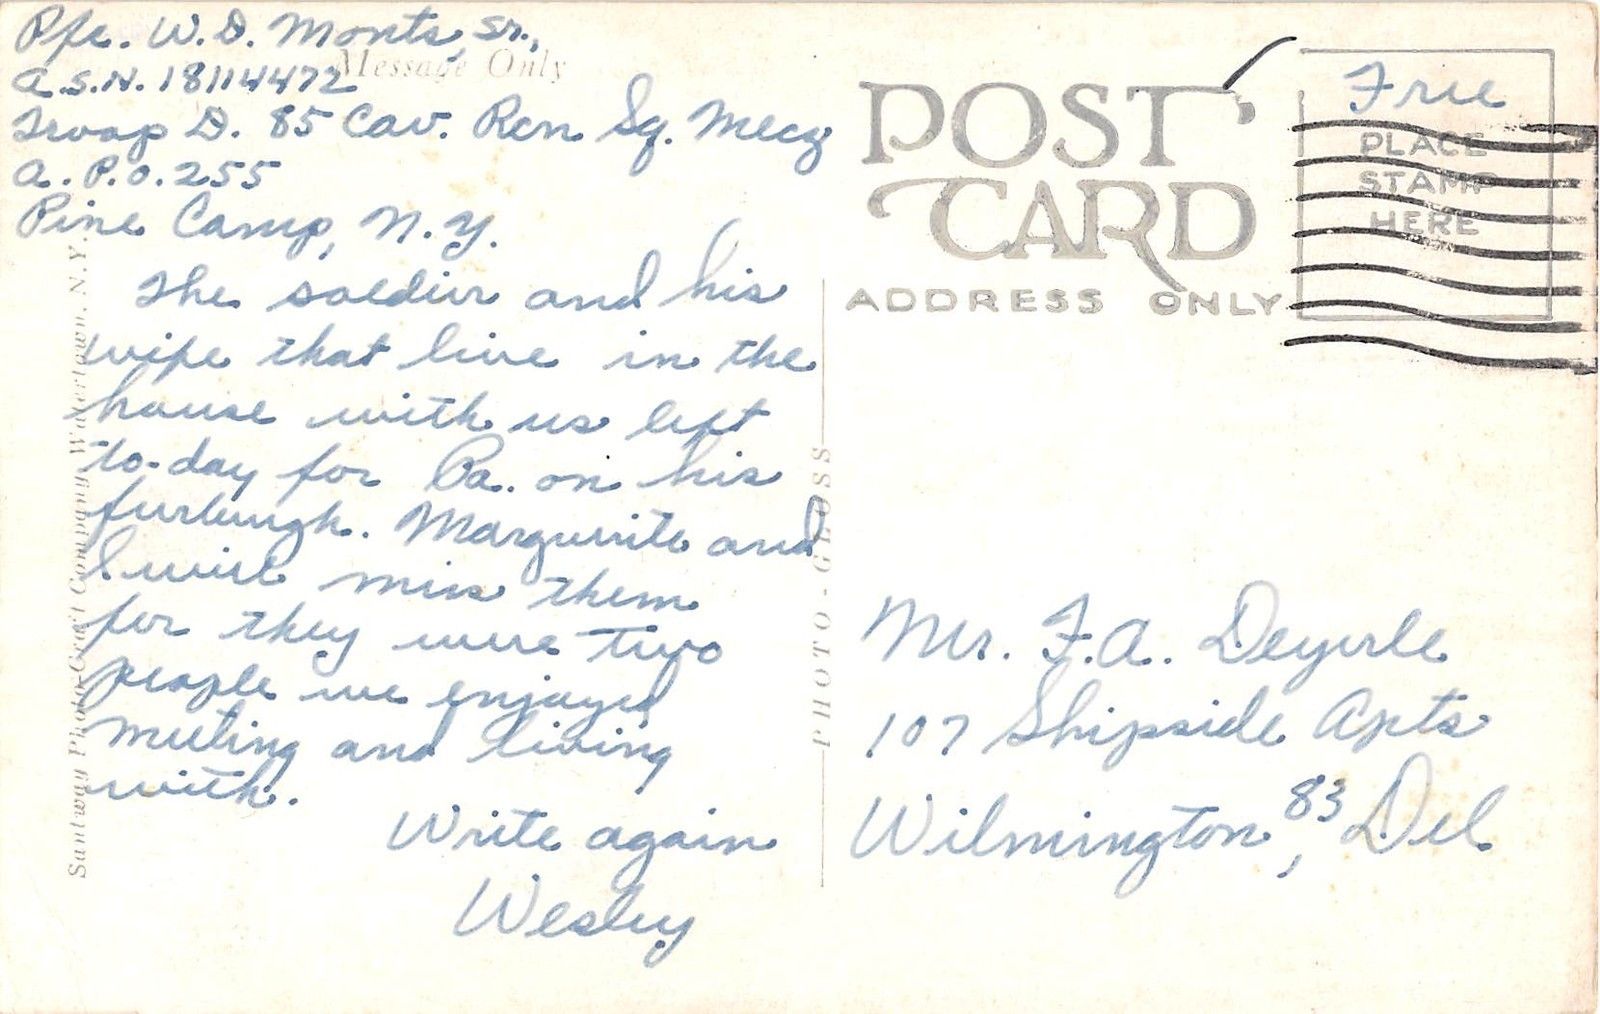 Pfc. W. D. Monts, Sr.,
Message Only
A.S.N. 18114472
Troop D. 85 Cav. Rcn Sq. Mecz
A.P.O. 255
Pine Camp, N.Y.
The soldier and his
wife that live in the
house with us left
to-day for Pa. on his
furlough. Marguerite and
I will miss them
for they were two
people we enjoyed
meeting and living
with.
Write again
Wesley
Santway Photo-Craft Company, Watertown, N.Y.
PHOTO-GLOSS
POST
CARD
ADDRESS ONLY
Free
PLACE
STAMP
HERE
Mr. F.A. Deyerle
107 Shipside Apts
Wilmington, 83 Del